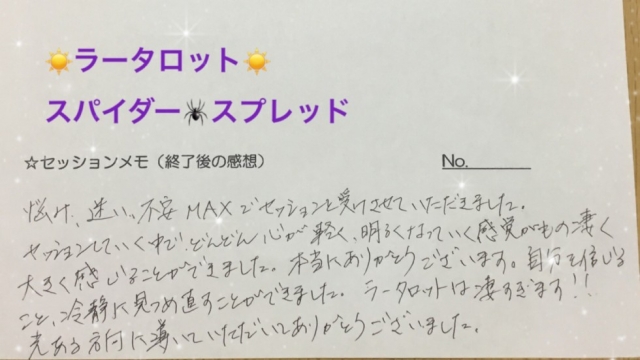 ☀️ラータロット☀️
スパイダー🕷スプレッド
☆セッションメモ（終了後の感想）
No.
悩み、迷い、不安MAXでセッションを受けさせていただきました。
セッションしていく中で、どんどん心が軽く、明るくなっていく感覚がもの凄く
大きく感じることができました。本当にありがとうございます。自分を信じる
こと、冷静に見つめ直すことができました。ラータロットは凄すぎます!!
光ある方向に導いていただいてありがとうございました。